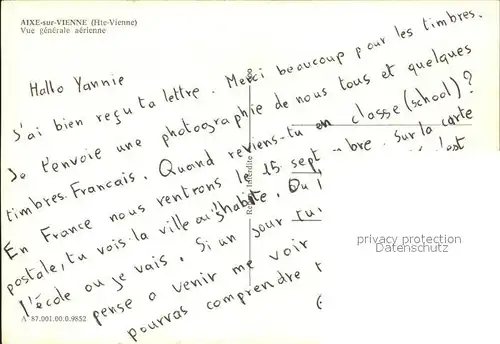 AIXE-sur-VIENNE (Hte-Vienne)
Vue générale aérienne
Hallo Yannie
J'ai bien reçu ta lettre. Merci beaucoup pour les timbres.
Je t'envoie une photographie de nous tous et quelques
timbres Francais. Quand reviens-tu en classe (school)?
En France nous rentrons le 15 sept mbre. Sur la carte
postale, tu vois la ville où j'habite. Du
l'école ou je vais. Si un jour tu
pense a venir me voir
pourras comprendre
Interdite
privacy protection
Datenschutz
A 87.001.00.0.9852